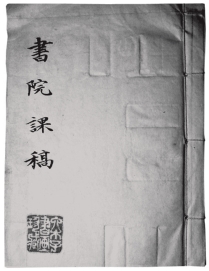 書院課稿